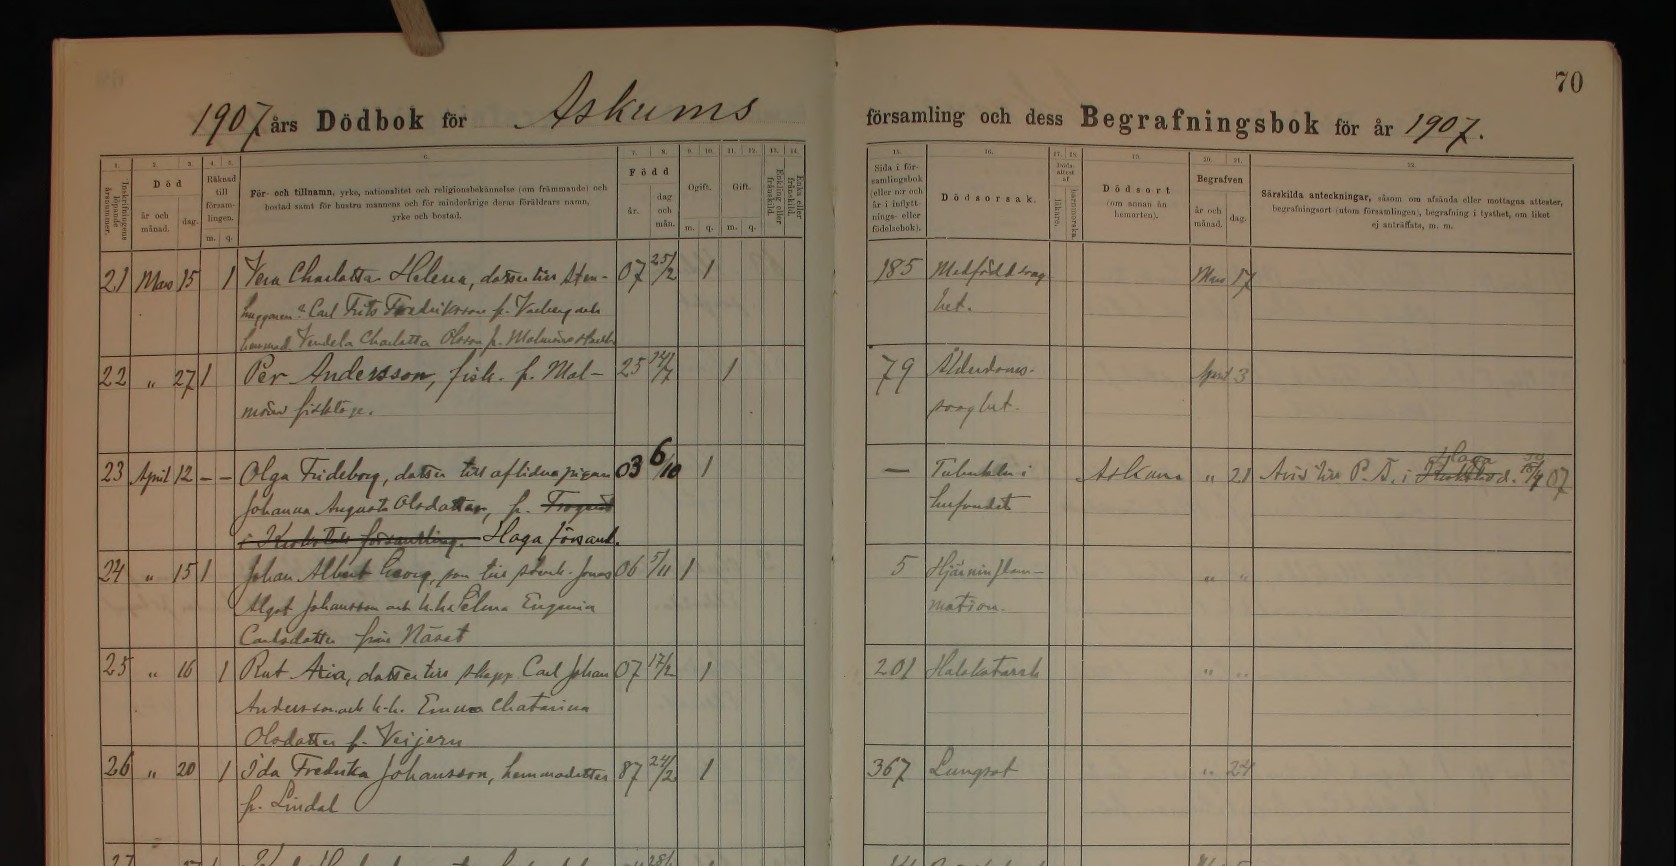 70
1907 års Dödbok för Askums
församling och dess Begrafningsbok för år 1907.
1. 2. 3. 4. 5. 6. 7. 8. 9. 10. 11. 12. 13. 14.
15. 16. 17. 18. 19. 20. 21. 22.
Inskrifningens löpande årsnummer.
Död
år och månad.
dag.
Räknad till försam-lingen.
m. q.
För- och tillnamn, yrke, nationalitet och religionsbekännelse (om främmande) och
bostad samt för hustru mannens och för minderårige deras föräldrars namn,
yrke och bostad.
Född
år.
dag och mån.
Ogift.
m. q.
Gift.
m. q.
Enkling eller frånskild.
Enka eller frånskild.
Sida i för-
samlingsbok
(eller n:r och
år i inflytt-
nings- eller
födelsebok).
Dödsorsak.
Döds-attest af
läkare.
barnmorska.
Dödsort
(om annan än
hemorten).
Begrafven
år och månad.
dag.
Särskilda anteckningar, såsom om afsända eller mottagna attester,
begrafningsort (utom församlingen), begrafning i tysthet, om liket
ej anträffats, m. m.
21 Mars 15 1 Vera Charlotta Helena, dotter till sten-
07 25/2 1
185 Medfödd svag
Mars 17
huggaren Carl Frits Fredriksson fr.
het.
Vendela Charlotta Olsson fr.
22 " 27 1 Per Andersson, fisk. fr. Mal-
25 24/7 1
79 Ålderdoms-
April 3
möns fiskläge.
svaghet.
23 April 12 – – Olga Frideborg, dotter till aflidna pigan
03 6/10 1
— Tuberkler i
Askum " 21
Haga
Johanna Augusta Olsdotter, fr.
hufvudet
församling. Haga församl.
24 " 15 1 Johan Albert Georg, son till stenh. Jonas
06 5/11 1
5 Hjärninflam-
" "
Algot Johansson och h.h. Selma Eugenia
mation.
Carlsdotter från Näset
25 " 16 1 Rut Aria, dotter till skepp. Carl Johan
07 17/2 1
201 Halskatarrh
" "
Andersson och h.h. Emma Chatarina
Olsdotter f. Veijern
26 " 20 1 Ida Fredrika Johansson, hemmadotter
87 24/2 1
367 Lungsot
" 24
fr. Lindal
27